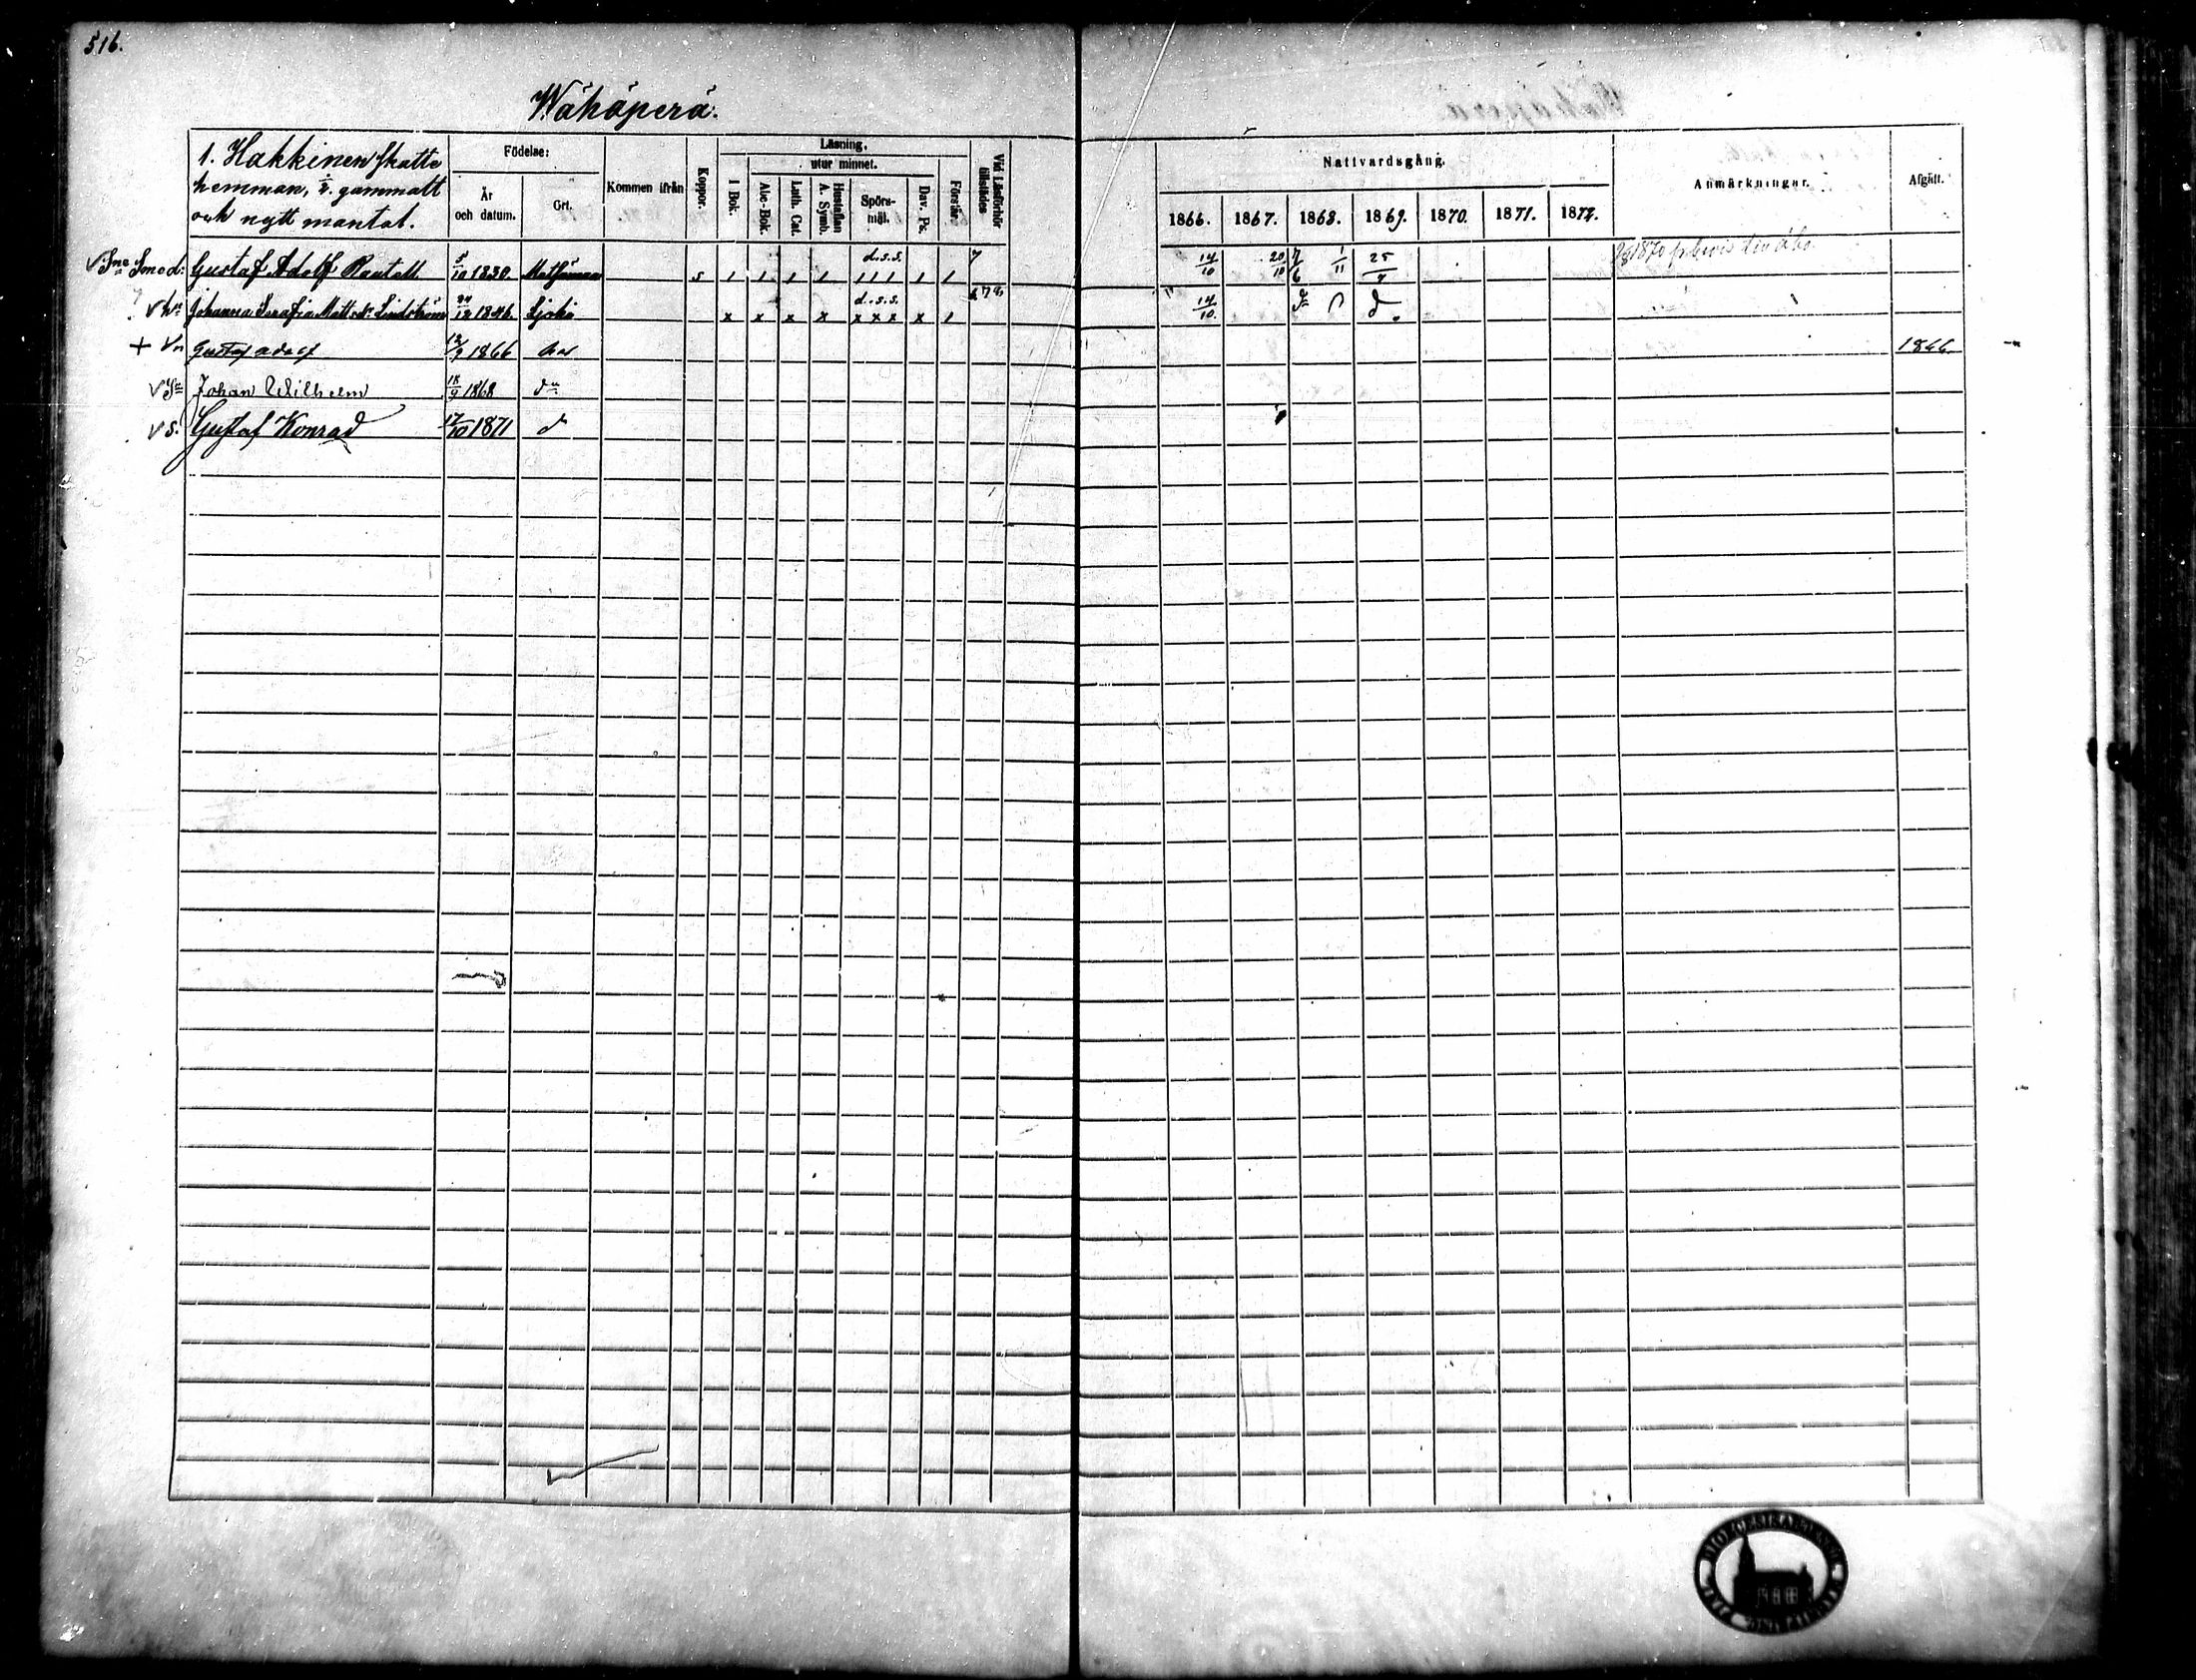 516.
Wähäperä.
1. Hakkinen skatte
hemman, gammalt
och nytt mantal.
Födelse:
År
och datum.
Ort.
Kommen ifrån
Koppor.
Läsning,
utur minnet.
I Bok.
Abc-Bok.
Luth. Cat.
Hustaflan
A. Symb.
Spörs-
mål.
Dav. Ps.
Förstår.
Vid Läsförhör
tillstädes
Nattvardsgång.
1866. 1867. 1868. 1869. 1870. 1871. 1872.
Anmärkningar.
Afgått.
Gustaf Adolf 5/10 1830. s 1 1 1 1 1 d.s.s. 1 1 1 1 1 7 14/10 20/10 7/6 1/11 25/7
Johanna Serafia Matts dr Lindström 24/12 1846. x x x x x d.s.s. x x x x 1 14/10 d
+ Gustaf Adolf 12/9 1866 1866.
Johan Wilhelm 18/9 1868 dn
v s. Gustaf Konrad 17/10 1871 d